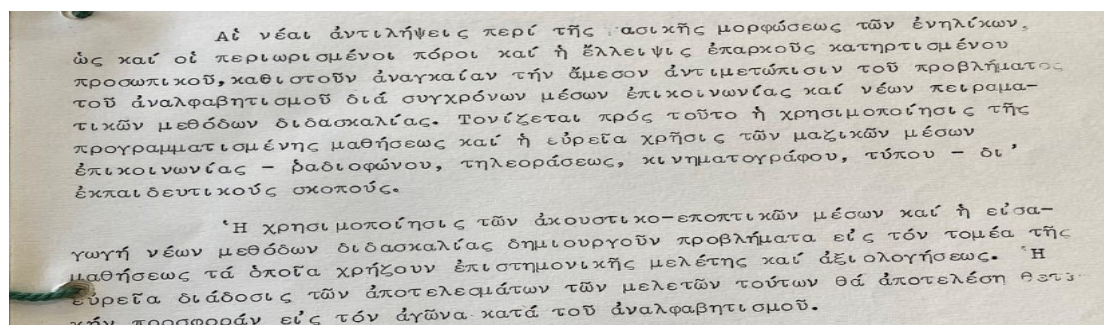 Αἱ νέαι ἀντιλήψεις περί τῆς βασικῆς μορφώσεως τῶν ἐνηλίκων,
ὡς καί οἱ περιωρισμένοι πόροι καί ἡ ἔλλειψις ἐπαρκοῦς κατηρτισμένου
προσωπικοῦ, καθιστοῦν ἀναγκαίαν τήν ἄμεσον ἀντιμετώπισιν τοῦ προβλήματος
τοῦ ἀναλφαβητισμοῦ διά συγχρόνων μέσων ἐπικοινωνίας καί νέων πειραμα-
τικῶν μεθόδων διδασκαλίας. Τονίζεται πρός τοῦτο ἡ χρησιμοποίησις τῆς
προγραμματισμένης μαθήσεως καί ἡ εὐρεῖα χρῆσις τῶν μαζικῶν μέσων
ἐπικοινωνίας - ραδιοφώνου, τηλεοράσεως, κινηματογράφου, τύπου - δι'
ἐκπαιδευτικούς σκοπούς.
Ἡ χρησιμοποίησις τῶν ἀκουστικο-εποπτικῶν μέσων καί ἡ εἰσα-
γωγή νέων μεθόδων διδασκαλίας δημιουργοῦν προβλήματα εἰς τόν τομέα τῆς
μαθήσεως τά ὁποῖα χρήζουν ἐπιστημονικῆς μελέτης καί ἀξιολογήσεως. Ἡ
εὐρεῖα διάδοσις τῶν ἀποτελεσμάτων τῶν μελετῶν τούτων θά ἀποτελέση θετι-
κήν προσφοράν εἰς τόν ἀγῶνα κατά τοῦ ἀναλφαβητισμοῦ.